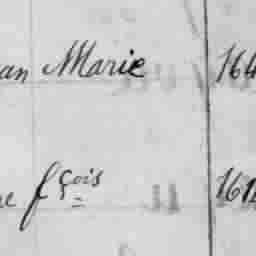 an Marie 164
e fçois 161